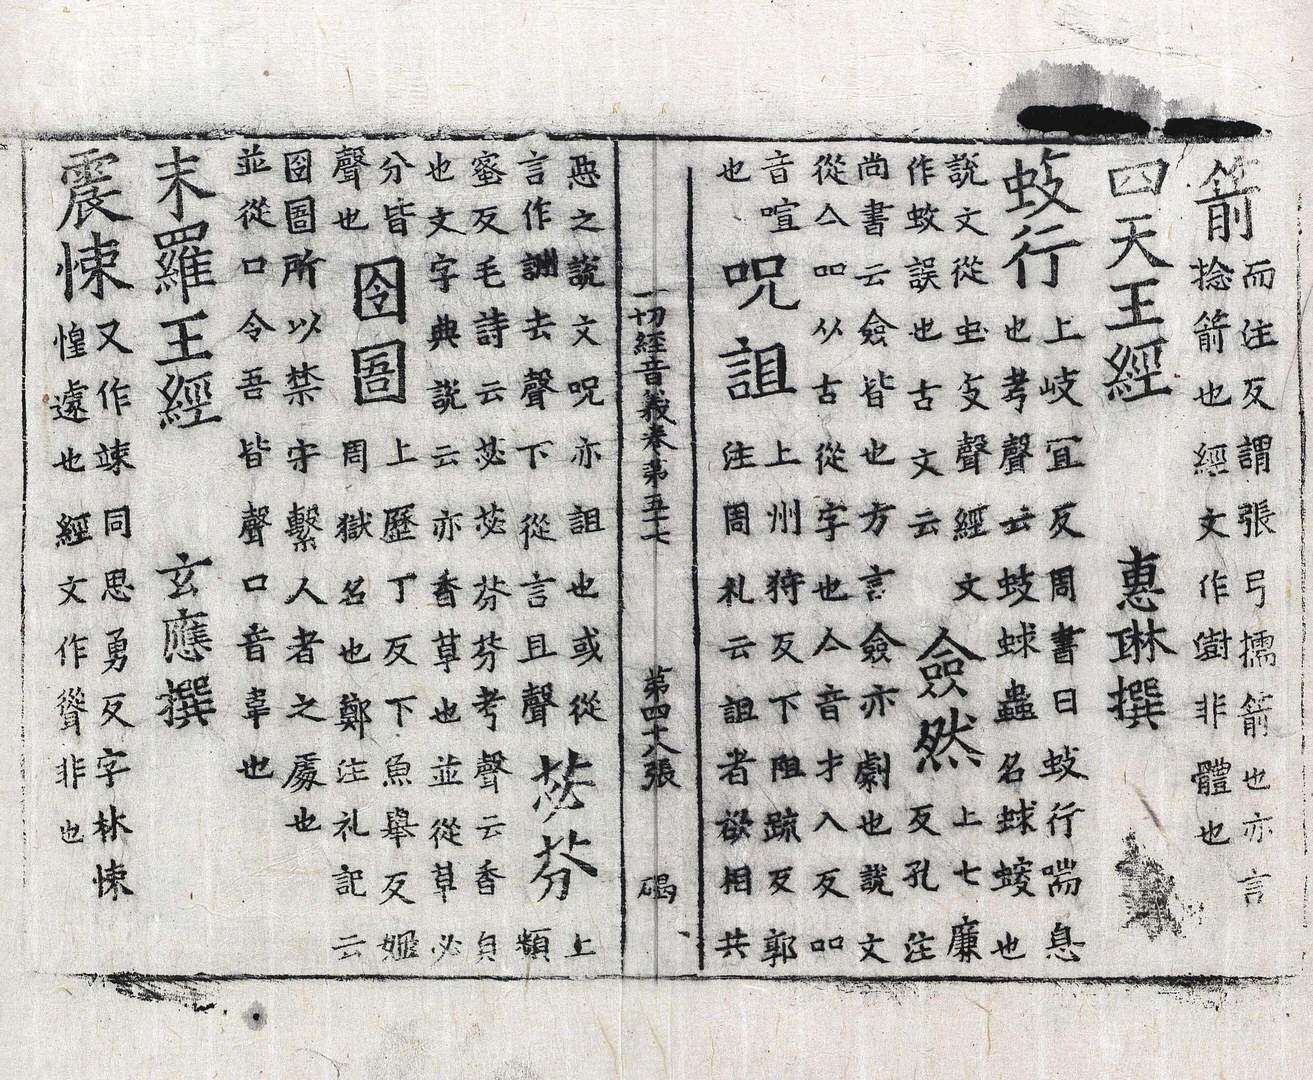 箭
而注反謂張弓擩箭也亦言
捻箭也經文作澍非體也
四天王經 惠琳撰
蚑行
上歧宜反周書曰蚑行喘息
也考聲云蚑蛷蟲名蛷螋也
說文從虫支聲經文
作蚊誤也古文云
僉然
上七廉
反孔注
尚書云僉皆也方言僉亦劇也說文
從亼吅从古從字也亼音才入反吅
音喧
也
呪詛
上州狩反下阻疏反郭
注周礼云詛者欲相共
一切經音義卷第五十七 第四十八張 碣
惡之說文呪亦詛也或從
言作詶去聲下從言且聲
苾芬
上
頻
蜜反毛詩云苾苾芬芬考聲云香皃
也文字典說云亦香草也並從草必
分皆
聲也
囹圄
上歷丁反下魚舉反姬
周獄名也鄭注礼記云
囹圄所以禁守繫人者之處也
並從口令吾皆聲口音韋也
末羅王經 玄應撰
震悚
又作竦同思勇反字林悚
惶遽也經文作聳非也